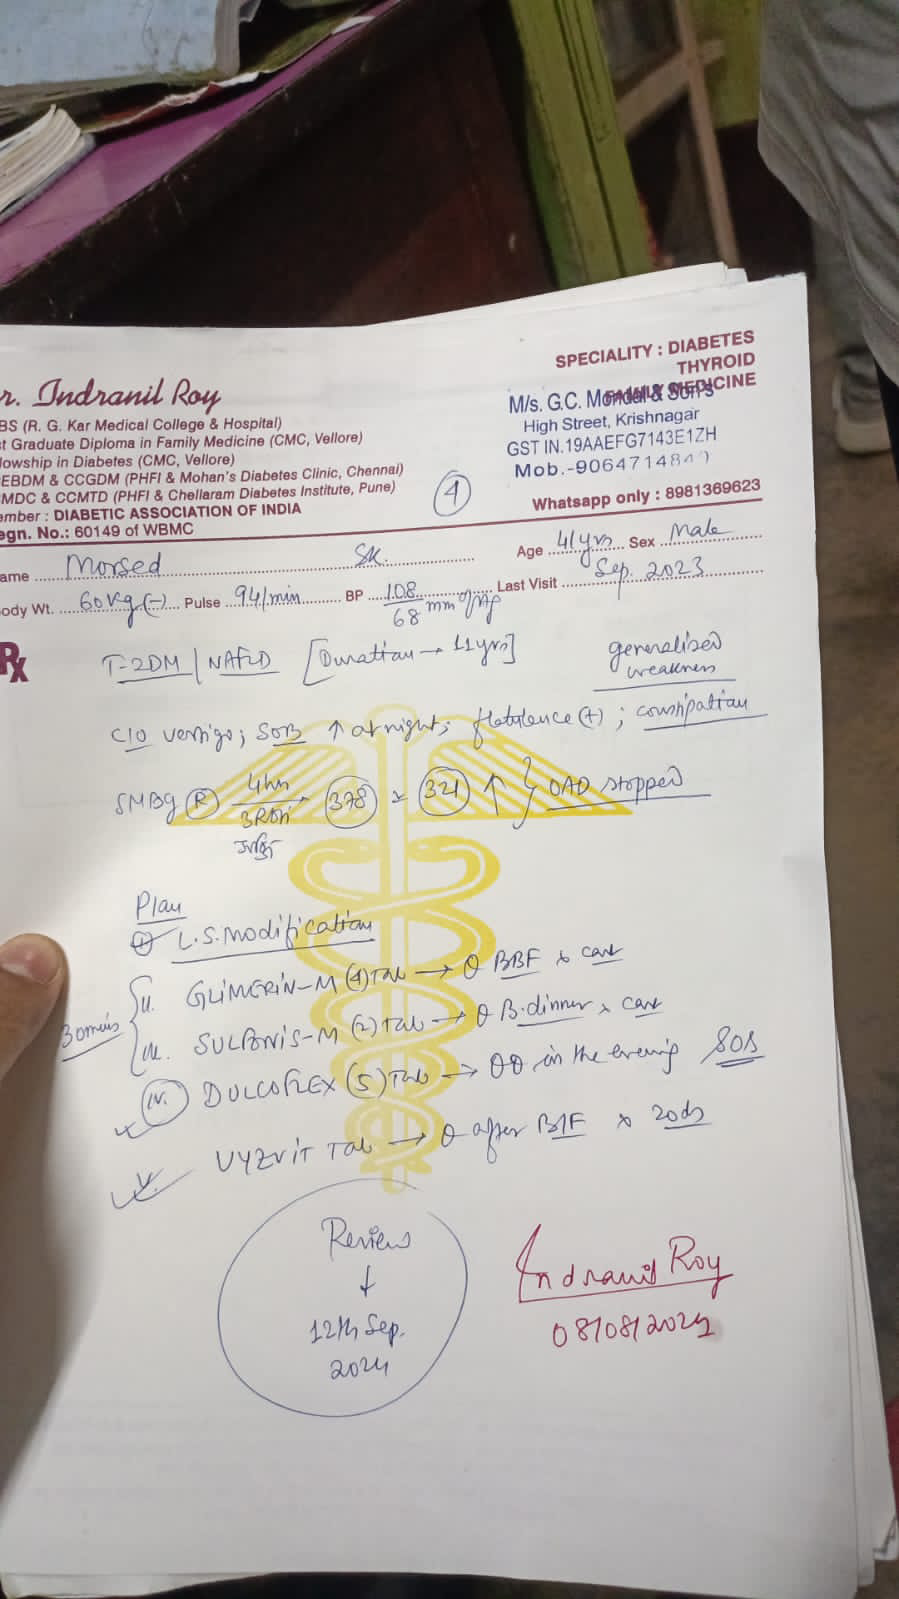 r. Indranil Roy
BS (R. G. Kar Medical College & Hospital)
t Graduate Diploma in Family Medicine (CMC, Vellore)
lowship in Diabetes (CMC, Vellore)
EBDM & CCGDM (PHFI & Mohan's Diabetes Clinic, Chennai)
MDC & CCMTD (PHFI & Chellaram Diabetes Institute, Pune)
ember : DIABETIC ASSOCIATION OF INDIA
egn. No.: 60149 of WBMC
SPECIALITY : DIABETES
THYROID
FAMILY MEDICINE
M/s. G.C. Mondal & Son's
High Street, Krishnagar
GST IN.19AAEFG7143E1ZH
Mob.-906471484
Whatsapp only : 8981369623
4
ame Morsed SK. Age 41yrs Sex Male
ody Wt. 60kg(-) Pulse 94/min BP 108/68 mm of Hg Last Visit Sep. 2023
Rx
T-2DM | NAFLD [Duration → 11yrs]
generalised
weakness
C/O vertigo; SOB ↑ at night; flatulence (+); constipation
SMBG (R) 4hrs 378 321 ↑ } OAD stopped
Plan
L.S. modification
3 omeis
ii. GLIMERIN-M (4) Tab → θ BBF x cont
iii. SULPONIS-M (2) Tab → θ B. dinner x cont
iv. DULCOFLEX (5) Tab → θθ in the evening SOS
v. VYZVIT Tab → θ after B/F x 20ds
Review
↓
12th Sep.
2024
Indranil Roy
08/08/2024